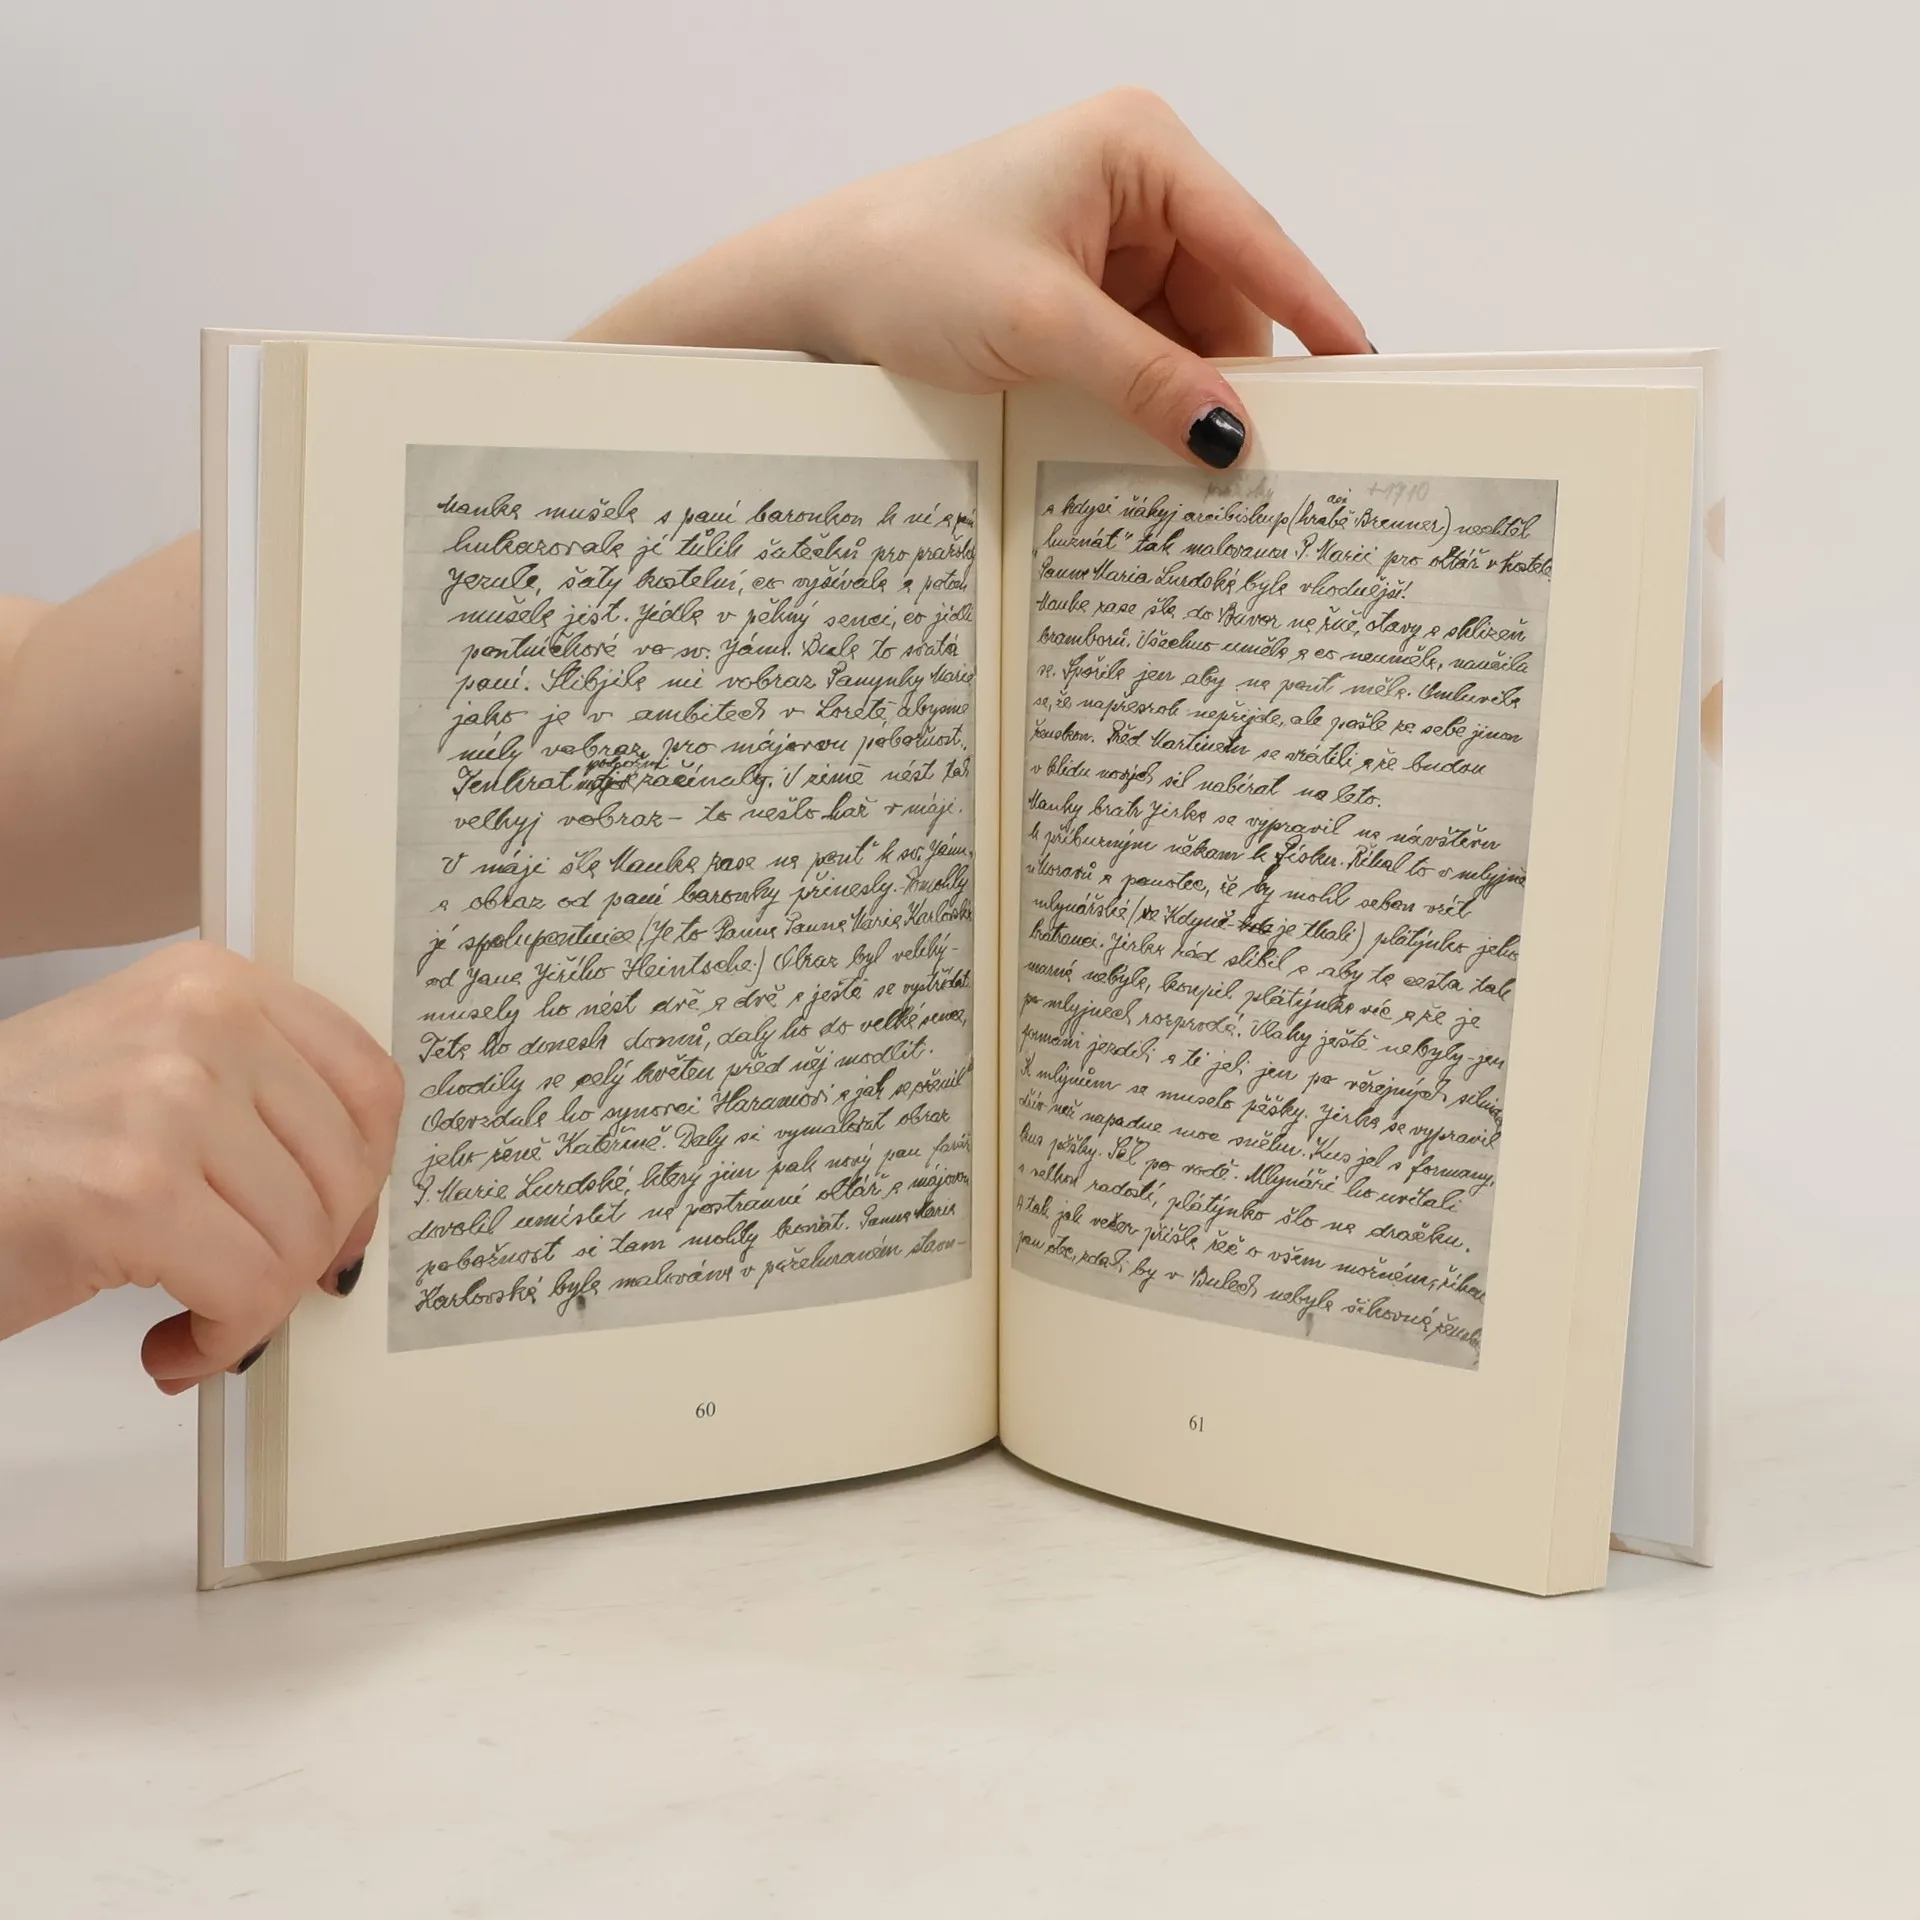 Manka mušela s paní baronkou k ní a paní
hukazovala jí tůlik šatečků pro pražský
Jezule, šaty kostelní, co vyšívala a potom
mušela jíst. Jídla v pěkný senci, co jídli
pontníčkové va sv. Jánu. Bula to svatá
paní. Slibjila mi vobraz Panynky Marie
jako je v ambitech v Loretě, abysme
měly vobraz pro májovou pobožnost.
Tenkrat pobožni začínaly. V zimě nést tak
velkyj vobraz – to nešlo kař v máji.
V máji šla Manka zasa na pouť k sv. Jánu,
a obraz od paní baronky přinesly. Pomohly
jí spolupoutnice (Je to Panna Panna Maria Karlovská
od Jana Jiřího Heintsche.) Obraz byl velký –
musely ho nést dvě a dvě a ještě se vystřídat.
Teta ho donesli domů, daly ho do velké sence,
chodily se celý květen před něj modlit.
Odevzdala ho synovci Haramovi a jak se oženil
jeho ženě Kateřině. Daly si vymalovat obraz
P. Marie Lurdské, který jim pak nový pan farář
dovolil umístit na postranní oltář a májovou
pobožnost si tam mohly konat. Panna Maria
Karlovská byla malována v požehnaném stavu –
60
+1710
a kdysi ňákyj arcibiskup (hrabě Brenner) nechtěl
"huznát" tak malovanou P. Marii pro oltář v kostele.
Panna Maria Lurdská byla vhodnější!
Manka zase šla do Bavor na žně, otavy a sklizeň
bramborů. Všechno uměla a co neuměla, naučila
se. Spořila jen aby na pouť měla. Omluvila
se, že napřesrok nepřijde, ale pošle za sebe jinou
ženskou. Před Martinem se vrátili a že budou
v klidu nových sil nabírat na léto.
Manky bratr Jirka se vypravil na návštěvu
k příbuzným někam k Písku. Říkal to v mlyjně
u Moravů a panotec, že by mohl sebou vzít
mlynářské (ve Kdyně je tkali) plátýnko jeho
bratranci. Jirka rád slíbil a aby ta cesta tak
marná nebyla, koupil plátýnka víc a že je
po mlyjnech rozprodá. Vlaky ještě nebyly – jen
formani jezdili a ti jeli jen po věrejných silnicích
K mlýnům se muselo pěšky. Jirka se vypravil
dřív než napadne moc sněhu. Kus jel s formany,
kus pěšky. Šel po vodě. Mlynáři ho uvítali
s velkou radostí, plátýnko šlo na dračku.
A tak jak večer přišla řeč o všem možném, říkou
pan otec, zdali by v Bulech nebyla šikovná ženská
61